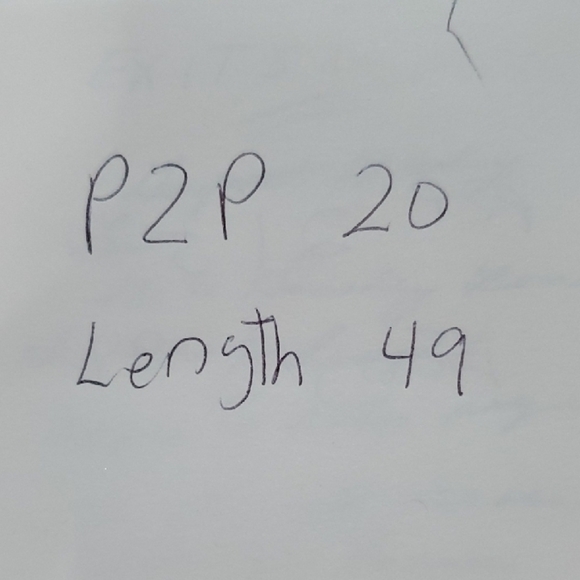 P2P 20
Length 49